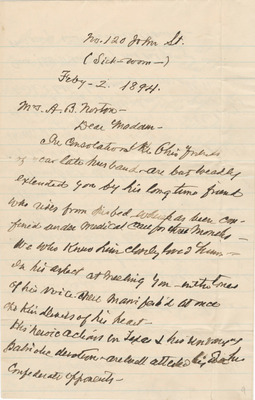 No. 120 John St.
(Sick-room-)
Feby-2. 1894.
Mrs A. B. Norton-
Dear Madam-
The Consolation of the Friends
of your late husband are but
extended you by his long time friend
who rises from the bed has been con-
fined under Medical care for three Months-
We who knew him closely loved him-
In his at Meeting You- in the tones
of his voice were at once
the kindness of his heart-
His heroic actions in & his unvarying
Patriotic devotion- are well attested by the
Confederate opponents-